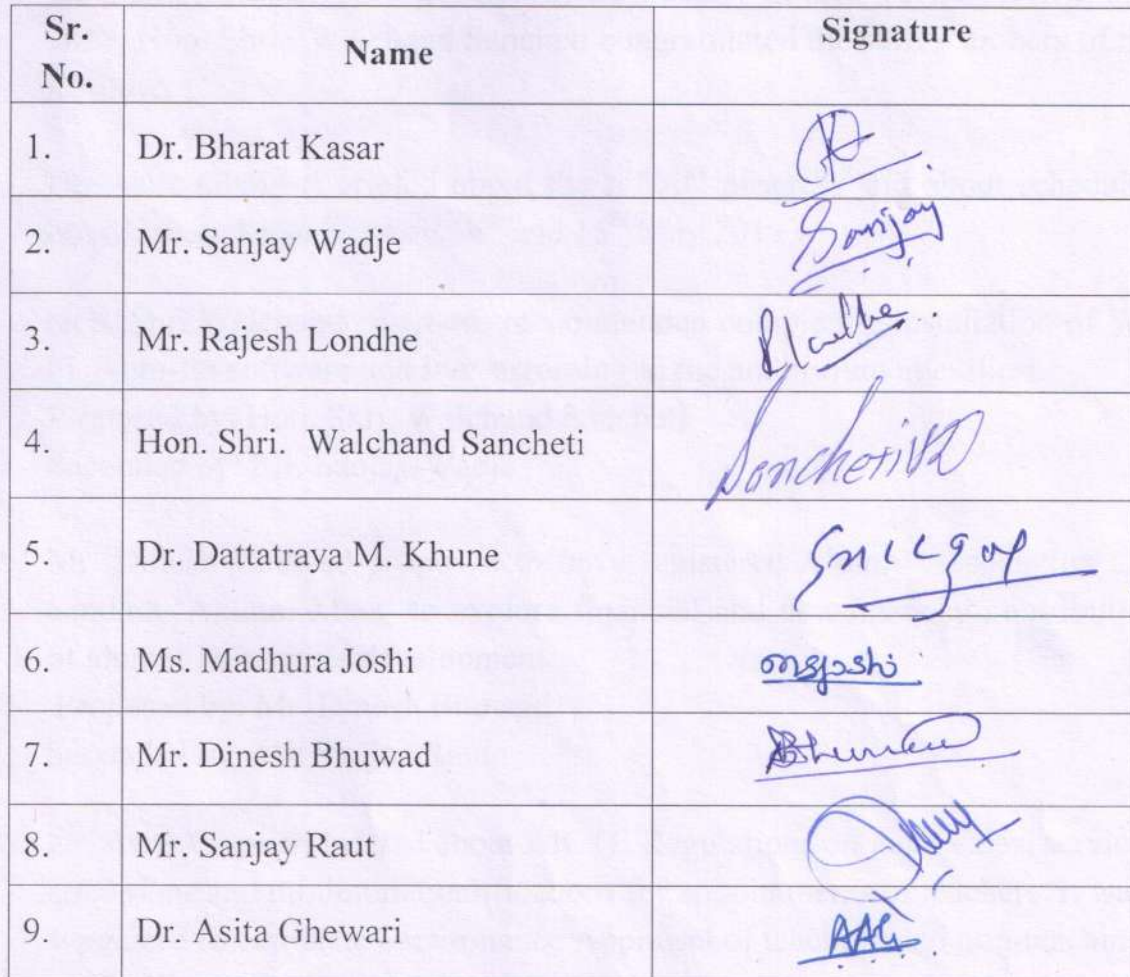 Sr. No. Name Signature
1. Dr. Bharat Kasar
2. Mr. Sanjay Wadje Sanjay
3. Mr. Rajesh Londhe
4. Hon. Shri. Walchand Sancheti Sancheti
5. Dr. Dattatraya M. Khune
6. Ms. Madhura Joshi msjoshi
7. Mr. Dinesh Bhuwad
8. Mr. Sanjay Raut
9. Dr. Asita Ghewari